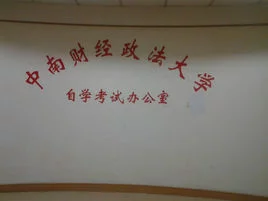 中南财经政法大学
自学考试办公室